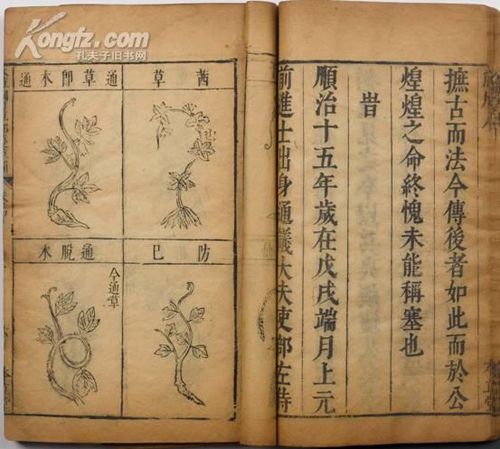 撫古而法今傳後者如此而於公
煌煌之命終愧未能稱塞也
昔
順治十五年歲在戊戌端月上元
前進士出身通議大夫吏部左侍
茜草
通草即木通
防巳
通脫木
今通草
Kongfz.com
孔夫子旧书网